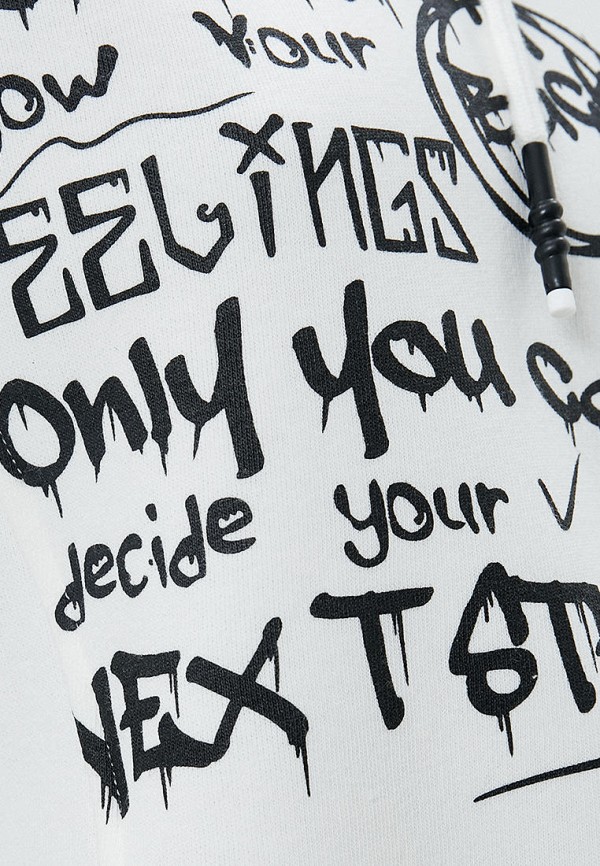 OW your
EELiNGS
Only you Co
decide your
NEXT ST